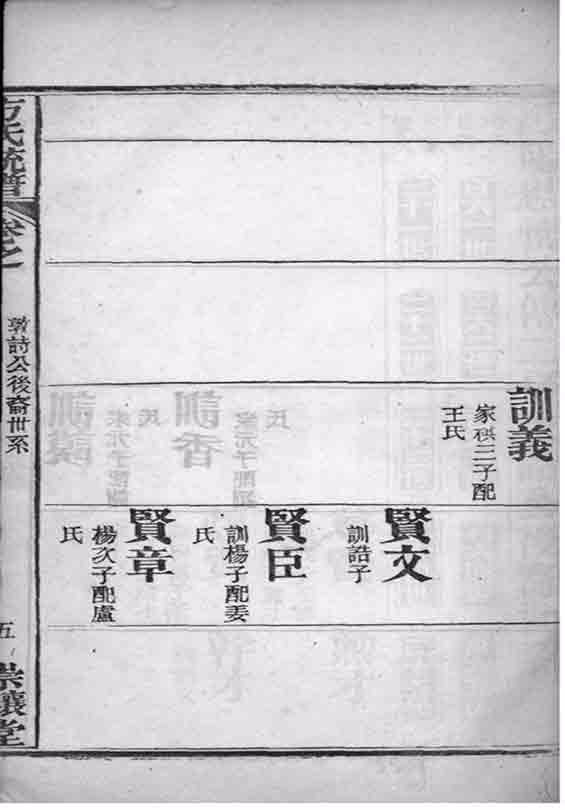 訓義
家祺三子配
王氏
賢文
訓誥子
賢臣
訓楊子配姜
氏
賢章
楊次子配盧
氏
方氏統譜
卷之
詩公後裔世系
五
崇讓堂